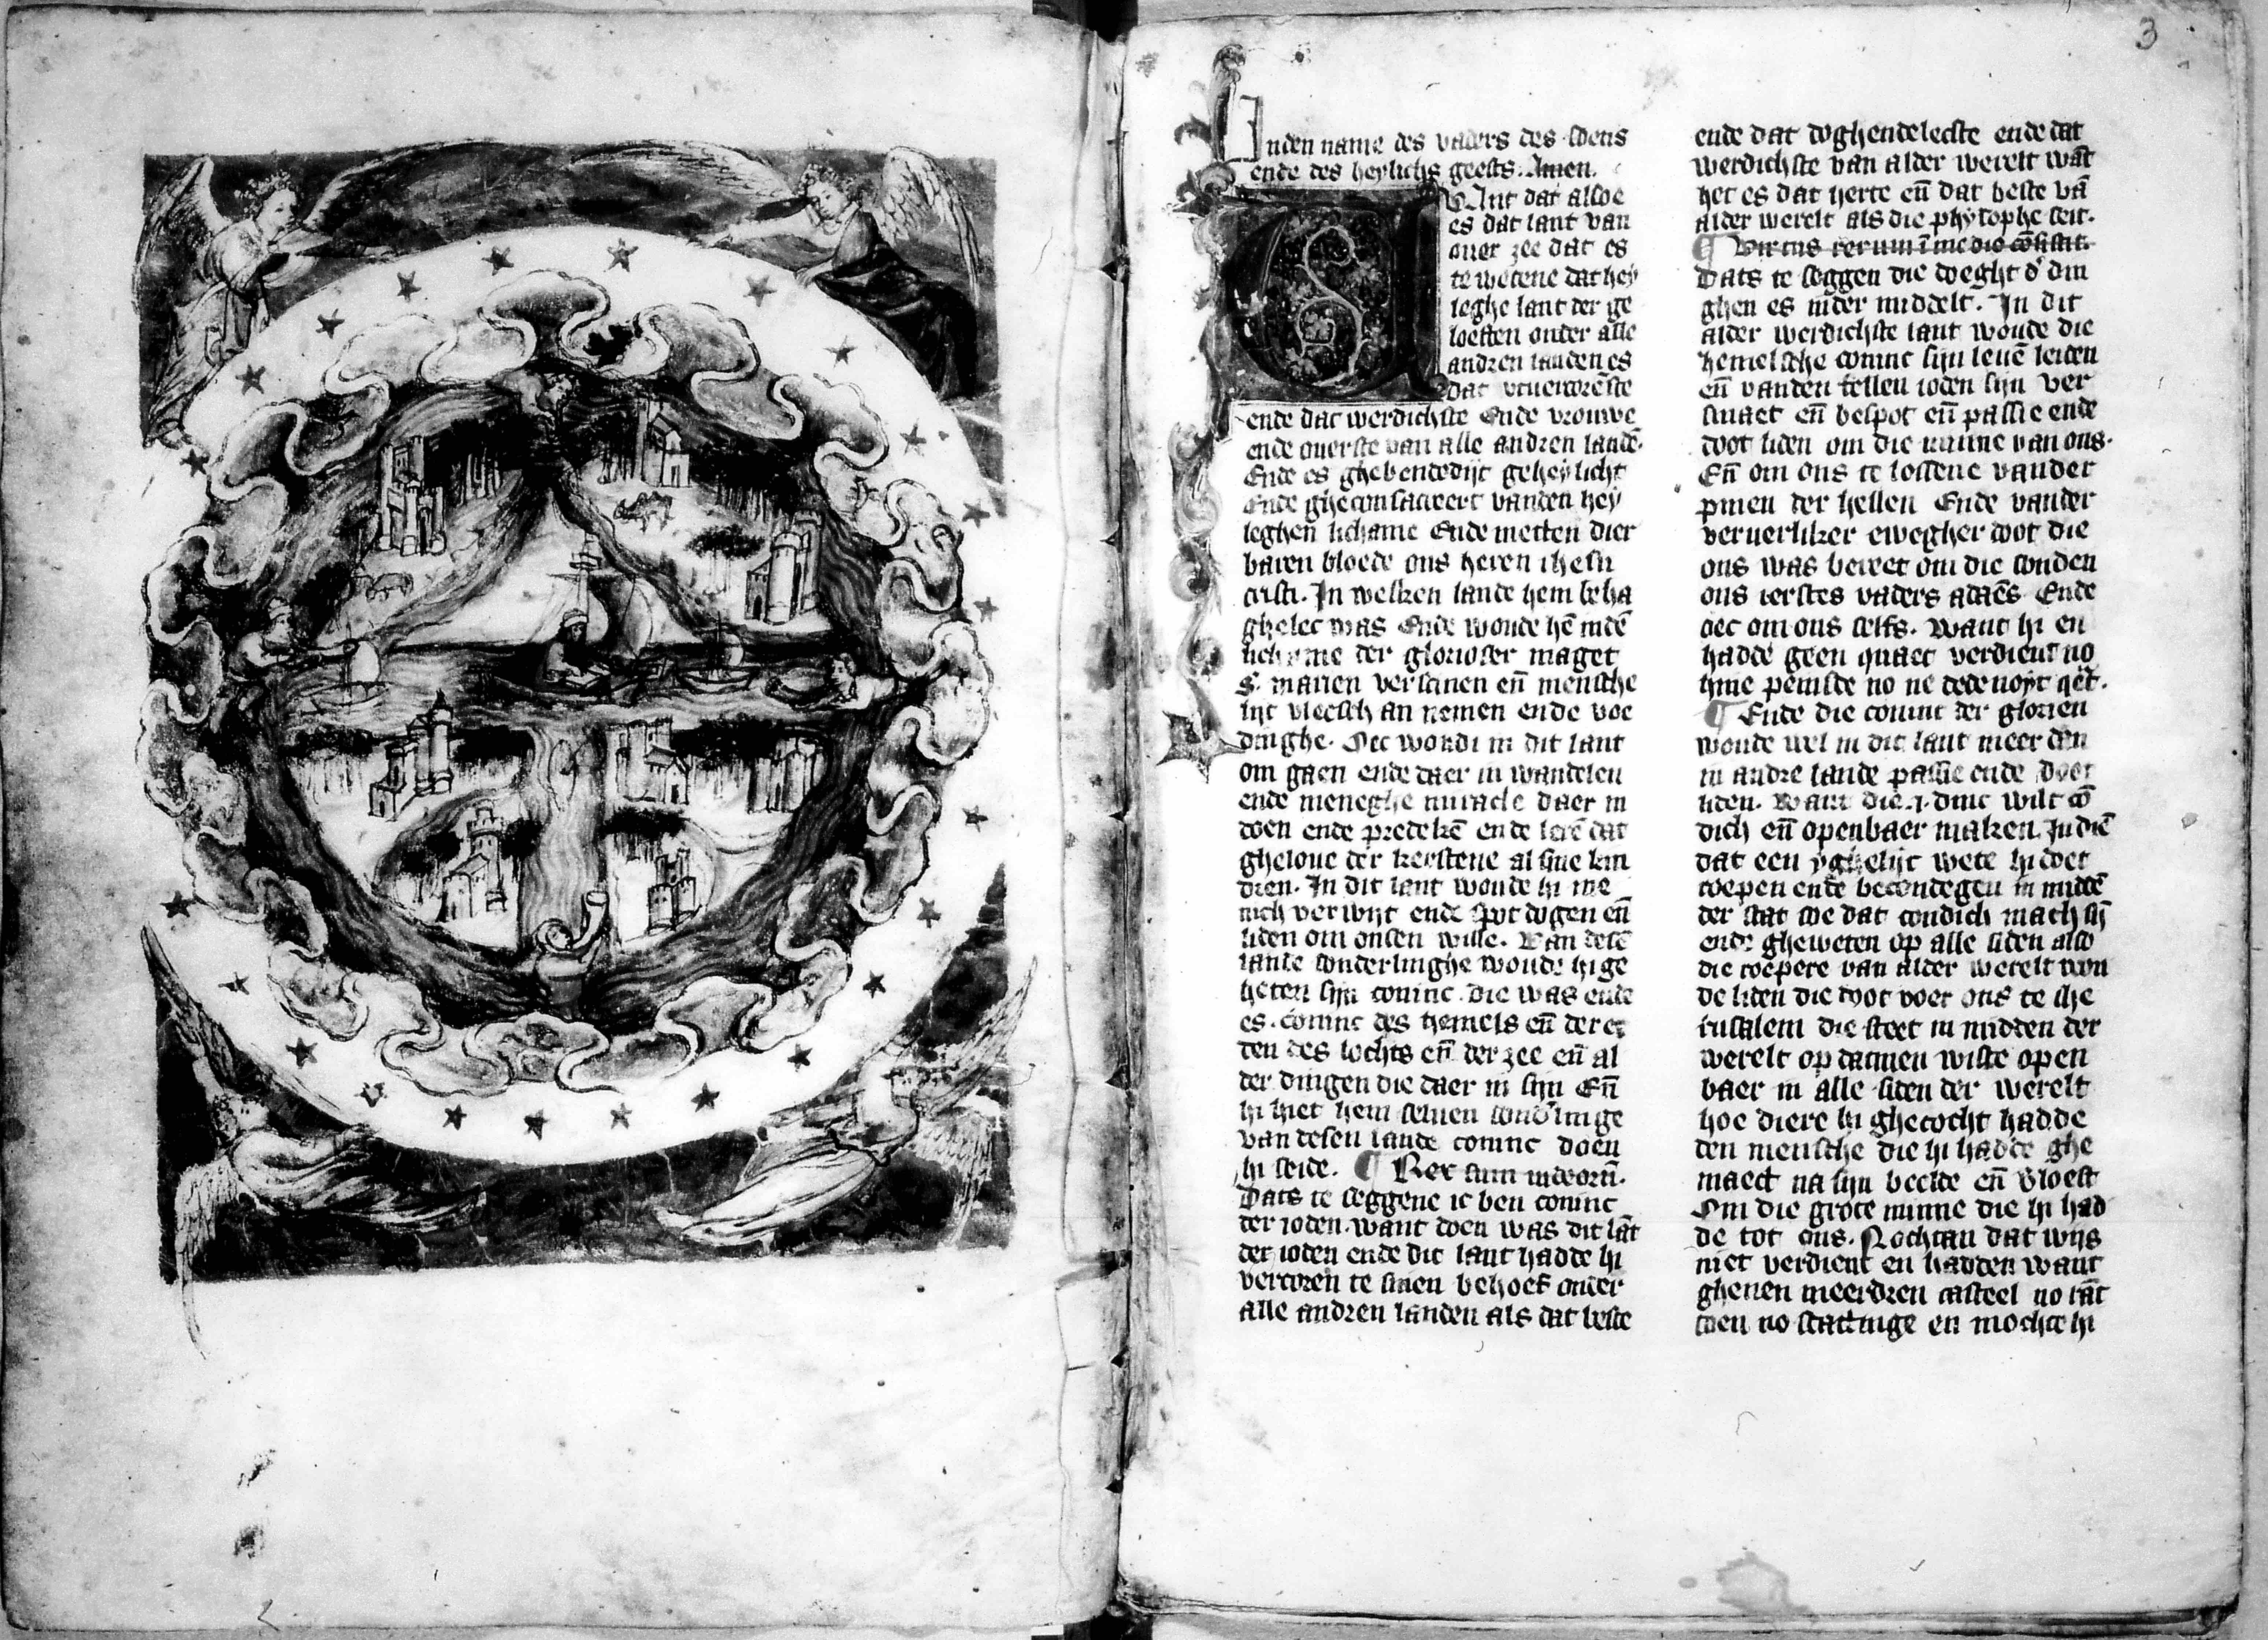 3
Inden name des vaders des soens
ende des heylichs geests. Amen.
WAnt dat alsoe
es dat lant van
ouer zee dat es
te wetene dat hey
leghe lant der ge
loeften onder alle
andren landen es
dat vtuercorēste
ende dat werdichste Ende vrouwe
ende ouerste van alle andren landē.
Ende es ghebendedijt geheylicht
Ende gheconsacreert vanden hey
leghen lichame Ende metten dier
baren bloede ons heren ihesu
cristi. In welken lande hem beha
ghelec was Ende woude hē indē
lichame der glorioser maget
S. marien verscinen eñ mensche
lijc vleesch an nemen ende voe
dinghe. Oec woudi in dit lant
om gaen ende daer in wandelen
ende meneghe miracle daer in
doen ende predekē ende lerē dat
gheloue der kerstene al sine kin
dren. In dit lant woude hi me
nich verwijt ende spot dogen eñ
liden om onsen wille. Van desē
lande sonderlinghe woude hi ge
heten sijn coninc. die was ende
es. coninc des hemels eñ der er
den des lochts eñ der zee eñ al
der dingen die daer in sijn Eñ
hi hiet hem seluen sond'linge
van desen lande coninc doen
hi seide. ¶ Rex sum iudeorū.
Dats te seggene ic ben coninc
der ioden. want doen was dit lāt
der ioden ende dit lant hadde hi
vercoren te sinen behoef onder
alle andren landen als dat beste
ende dat doghendelecste ende dat
werdichste van alder werelt wāt
het es dat herte eñ dat beste vā
alder werelt als die phylosophe seit.
¶ Virtus rerum ī medio cōsistit.
Dats te seggen die doeght d' din
ghen es inder middelt. In dit
alder werdichste lant woude die
hemelsche coninc sijn leuē leiden
eñ vanden fellen ioden sijn ver
smaet eñ bespot eñ passie ende
doot liden om die minne van ons.
Eñ om ons te lossene vander
pinen der hellen Ende vander
veruerliker ewegher doot die
ons was bereet om die sonden
ons ierstes vaders adaēs Ende
oec om ons selfs. Want hi en
hadde geen quaet verdient no
hine peinsde no ne dede noyt qēt.
¶ Ende die coninc der glorien
woude wel in dit lant meer dan
in andre lande passie ende doot
liden. Want die .i. dinc wilt cō
dich eñ openbaer maken. In diē
dat een yghelijc wete hi doet
roepen ende becondegen in middē
der stat soe dat condich mach sij
ende gheweten op alle siden also
die scepere van alder werelt wou
de liden die doot voer ons te ihe
rusalem die steet in midden der
werelt op datmen wiste open
baer in alle siden der werelt
hoe diere hi ghecocht hadde
den mensche die hi hadde ghe
maect na sijn beelde eñ v'loest
Om die grote minne die hi had
de tot ons. Nochtan dat wijs
niet verdient en hadden want
ghenen meerdren casteel no rāt
soen no scattinge en mochte hi